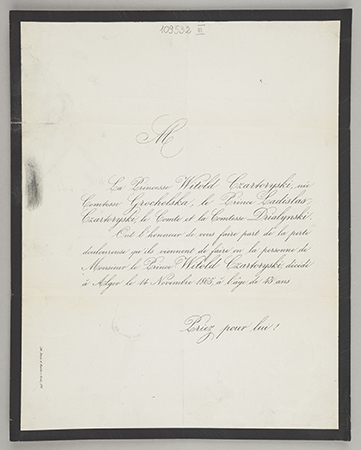 109592 III
M
La Princesse Witold Czartoryski, née
Comtesse Grocholska, le Prince Ladislas
Czartoryski, le Comte et la Comtesse Dzialynski.
Ont l'honneur de vous faire part de la perte
douloureuse qu'ils viennent de faire en la personne de
Monsieur le Prince Witold Czartoryski, décédé
à Alger le 14 Novembre 1865, à l'âge de 43 ans.
Priez pour lui!